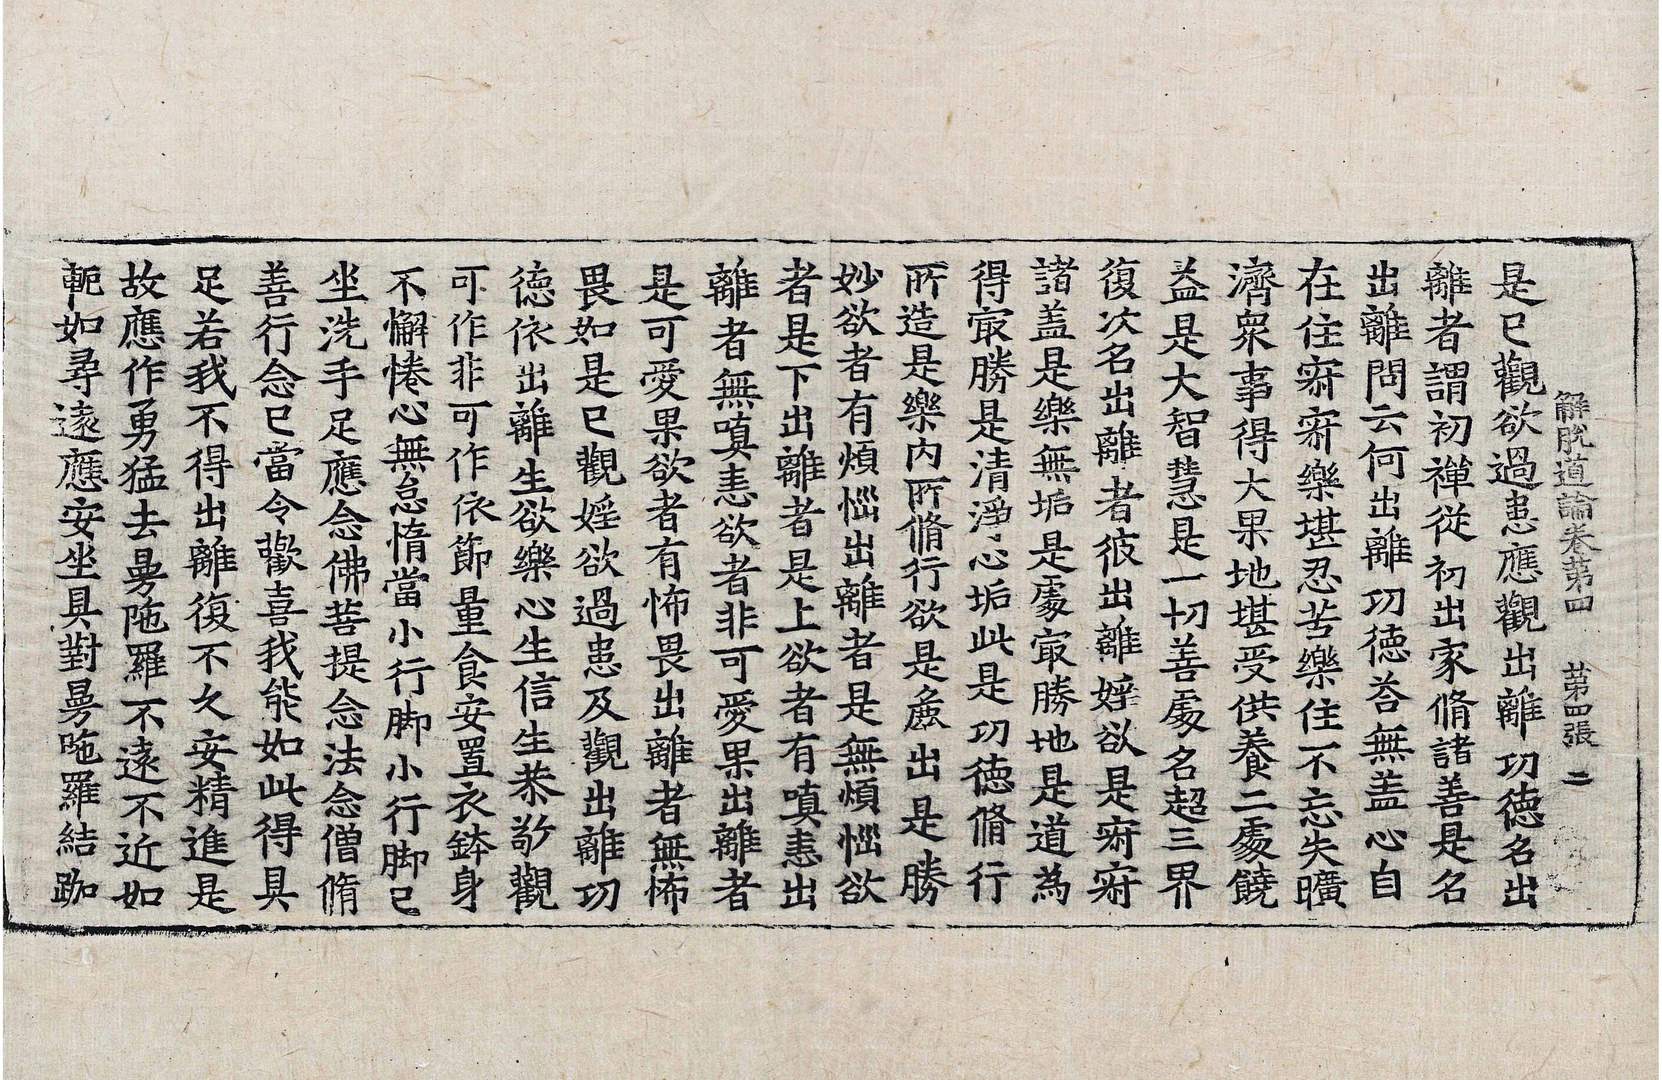 解脫道論卷第四 第四張 二
是已觀欲過患應觀出離功德名出
離者謂初禪從初出家脩諸善是名
出離問云何出離功德荅無盖心自
在住寂寂樂堪忍苦樂住不忘失曠
濟衆事得大果地堪受供養二處饒
益是大智慧是一切善處名超三界
復次名出離者彼出離婬欲是寂寂
諸盖是樂無垢是處㝡勝地是道為
得㝡勝是清淨心垢此是功德脩行
所造是樂內所脩行欲是麁出是勝
妙欲者有煩惱出離者是無煩惱欲
者是下出離者是上欲者有嗔恚出
離者無嗔恚欲者非可愛果出離者
是可愛果欲者有怖畏出離者無怖
畏如是已觀婬欲過患及觀出離功
德依出離生欲樂心生信生恭敬觀
可作非可作依節量食安置衣鉢身
不懈惓心無怠惰當小行脚小行脚已
坐洗手足應念佛菩提念法念僧脩
善行念已當令歡喜我能如此得具
足若我不得出離復不久安精進是
故應作勇猛去曼陁羅不遠不近如
軛如尋遠應安坐具對曼陁羅結跏